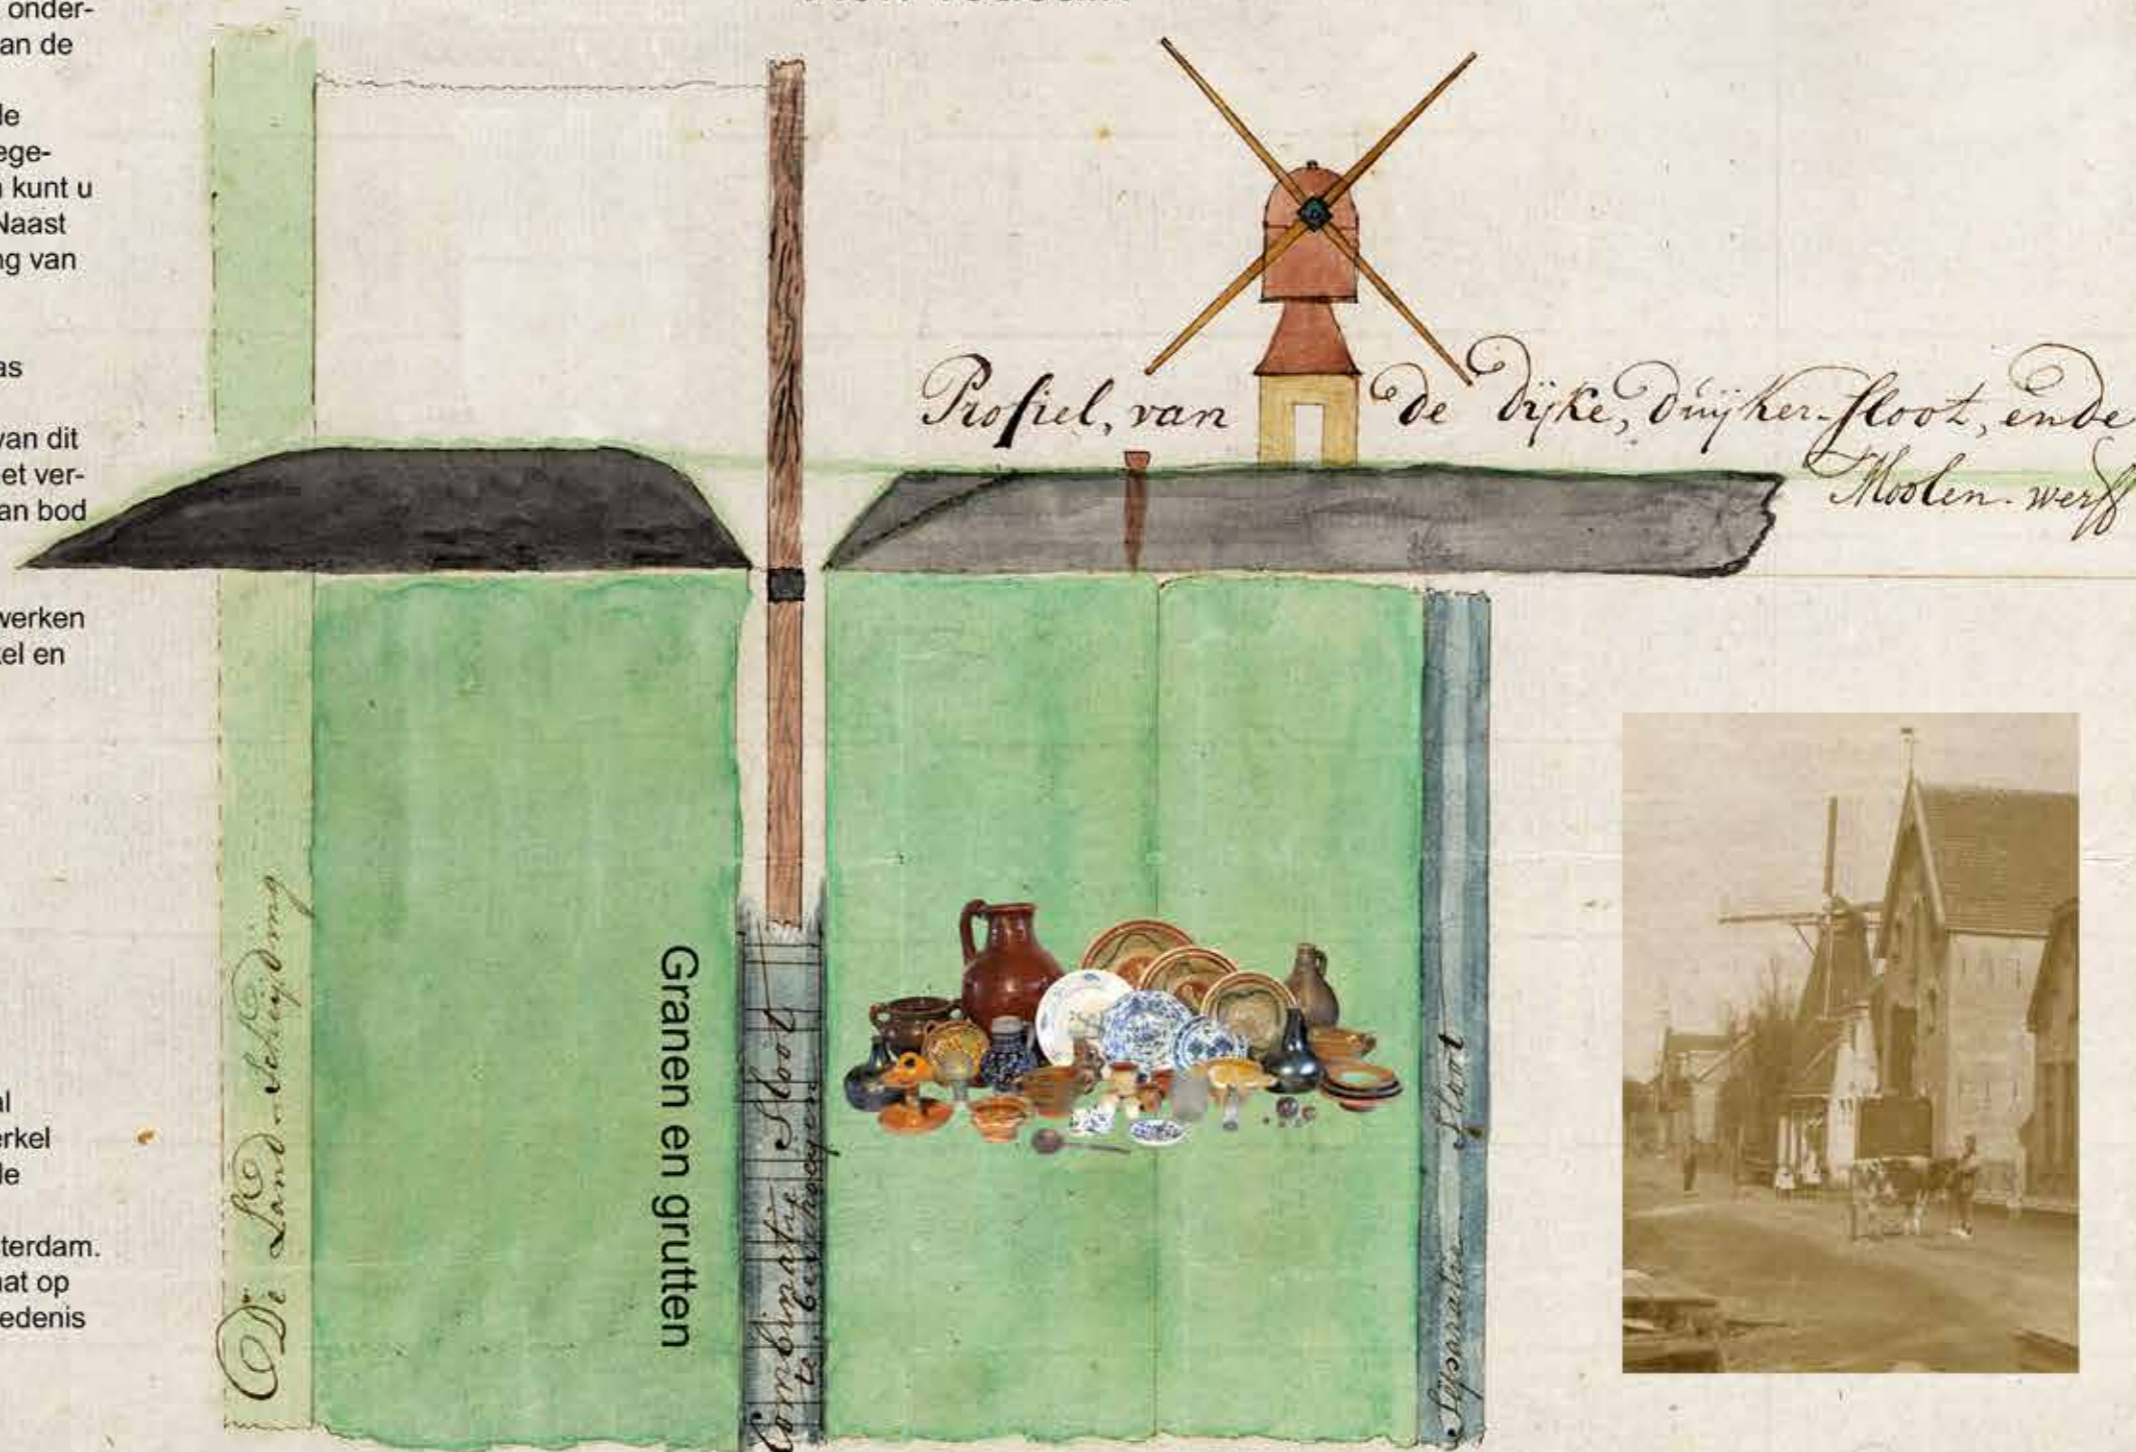 onder-
an de
de
ege-
kunt u
Naast
ng van
as
van dit
et ver-
an bod
werken
kel en
al
erkel
de
sterdam.
aat op
edenis
Profiel, van de Dijke, Duijker-sloot, ende
Moolen-werff
De Land-Scheijding
Granen en grutten
Combinatie Sloot
te
Separatie Sloot